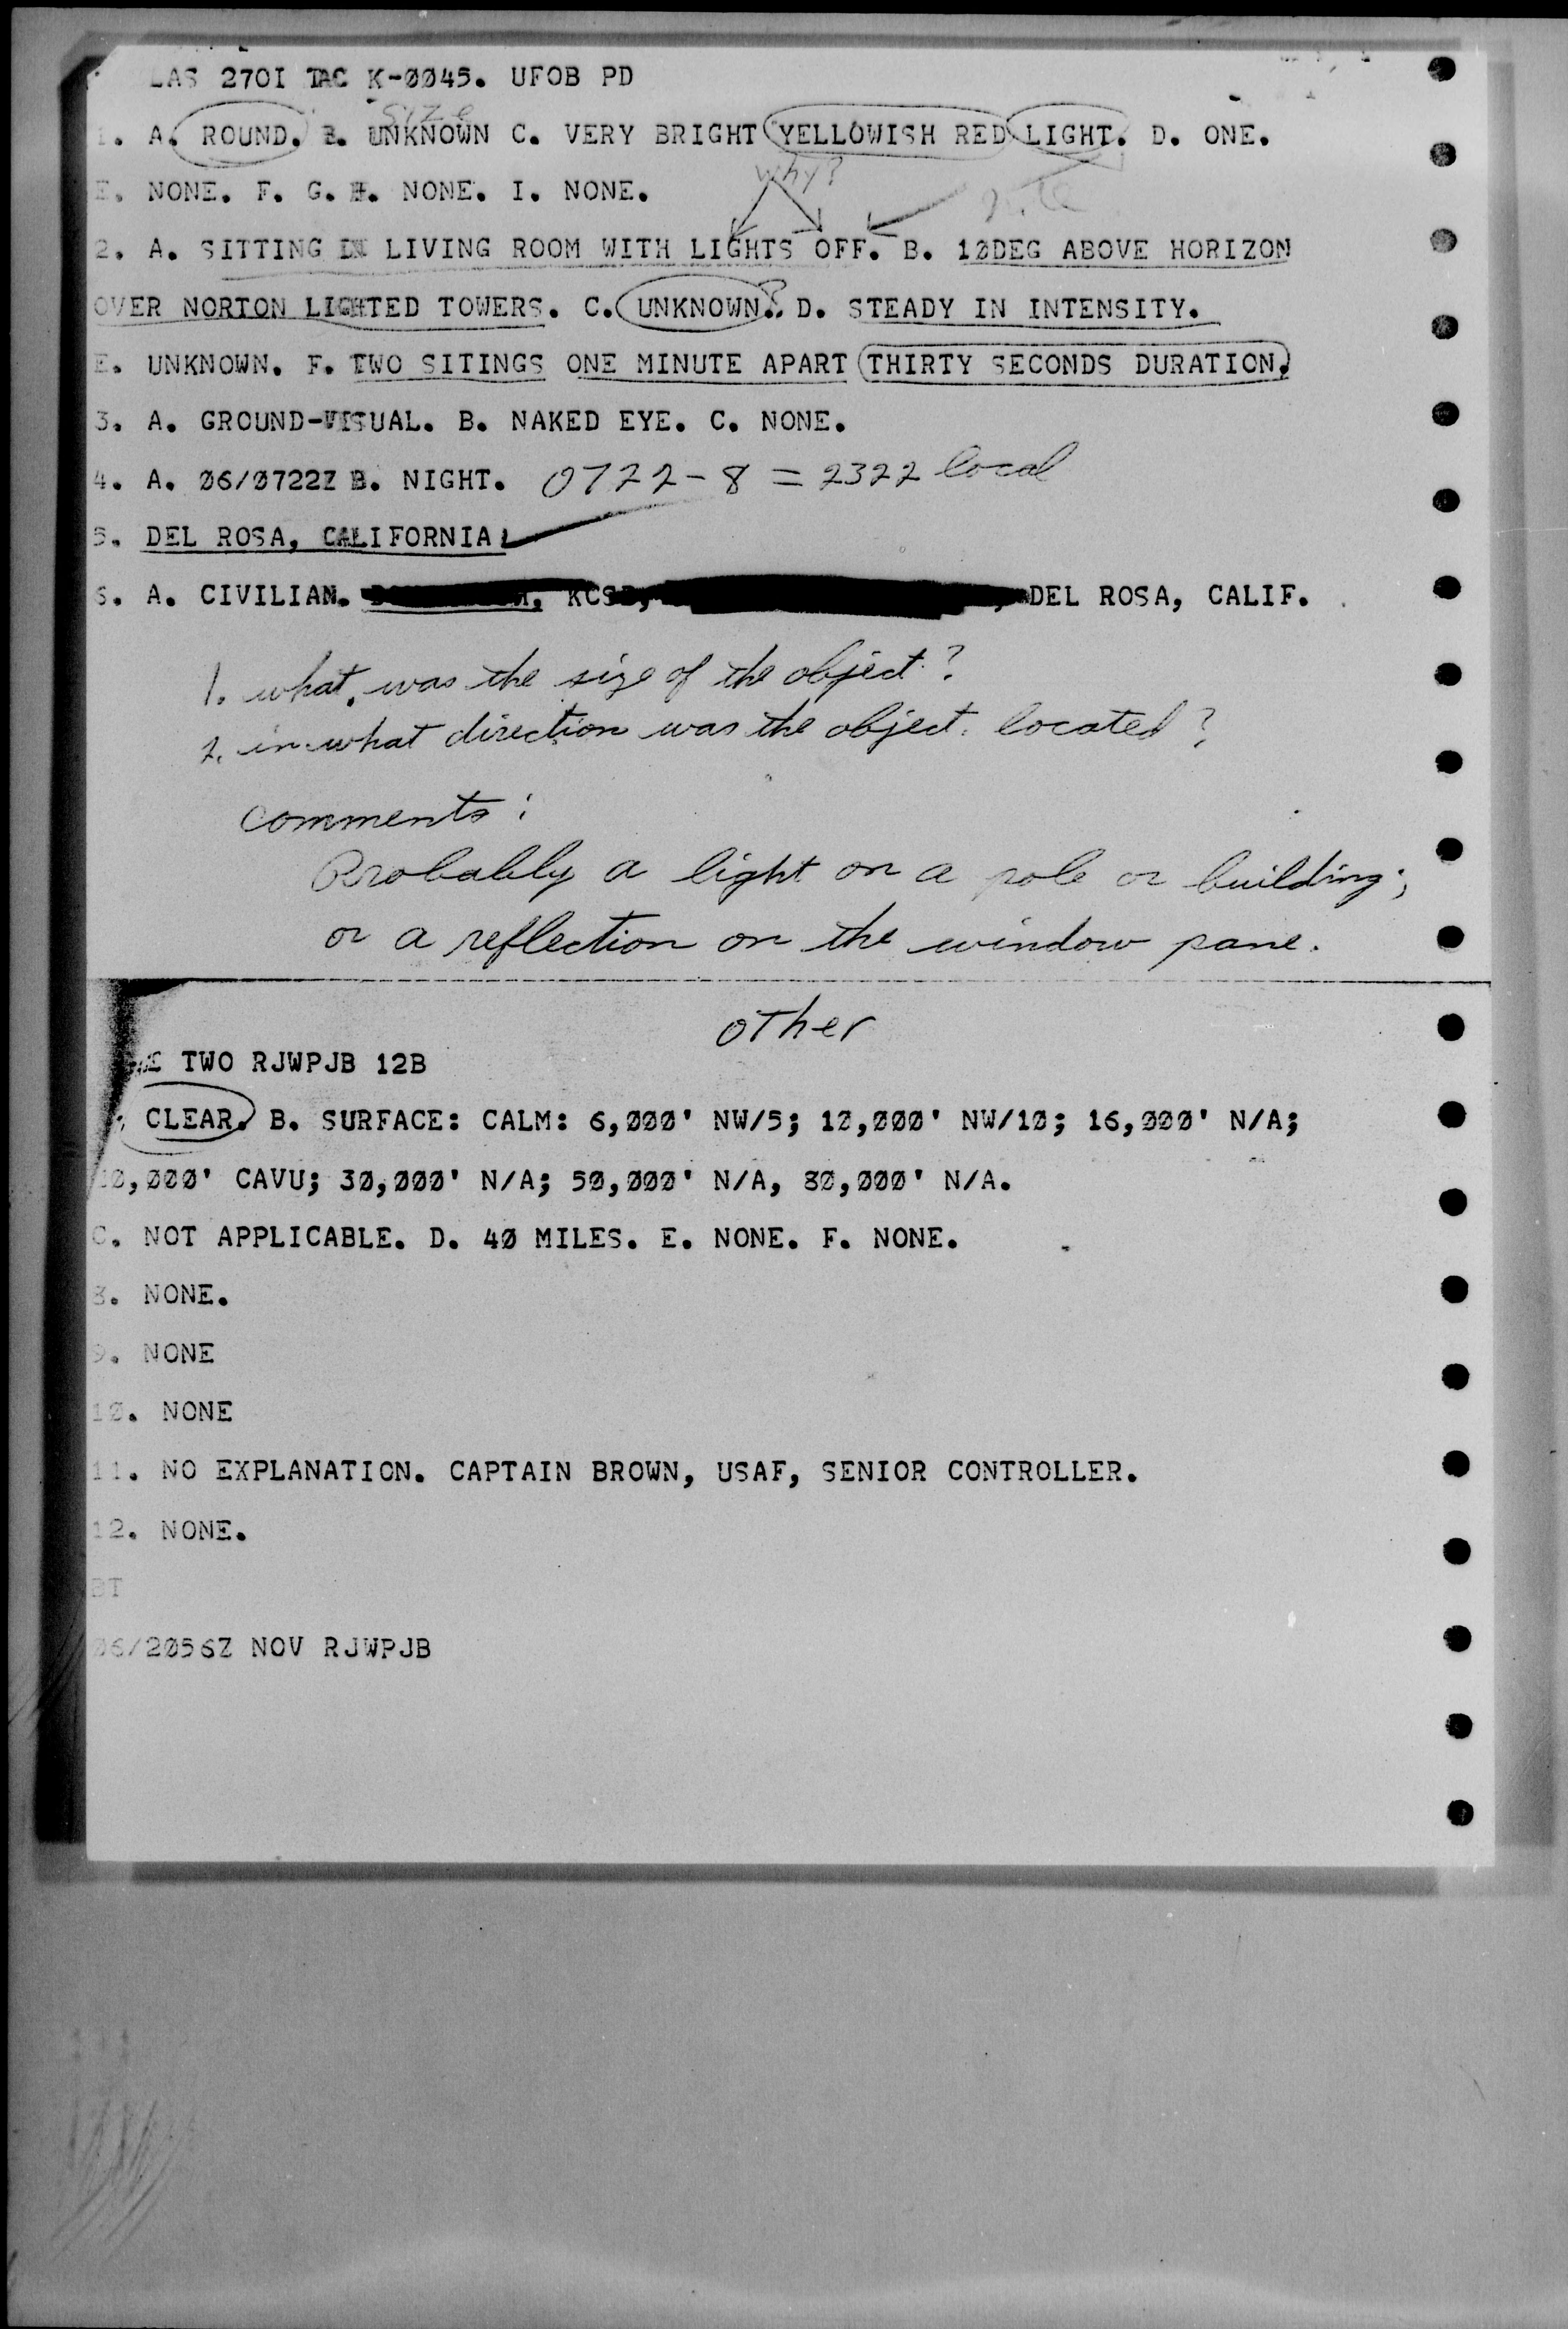 LAS 270I TAC K-0045. UFOB PD
size
1. A. ROUND. B. UNKNOWN C. VERY BRIGHT YELLOWISH RED LIGHT. D. ONE.
why?
E. NONE. F. G. H. NONE. I. NONE.
2. A. SITTING IN LIVING ROOM WITH LIGHTS OFF. B. 10DEG ABOVE HORIZON
OVER NORTON LIGHTED TOWERS. C. UNKNOWN. ? D. STEADY IN INTENSITY.
E. UNKNOWN. F. TWO SITINGS ONE MINUTE APART THIRTY SECONDS DURATION.
3. A. GROUND-VISUAL. B. NAKED EYE. C. NONE.
4. A. 06/0722Z B. NIGHT. 0722-8 = 2322 local
5. DEL ROSA, CALIFORNIA
6. A. CIVILIAN. DEL ROSA, CALIF.
1. what was the size of the object?
2. in what direction was the object located?
comments:
Probably a light on a pole or building;
or a reflection on the window pane.
other
TWO RJWPJB 12B
CLEAR. B. SURFACE: CALM: 6,000' NW/5; 10,000' NW/10; 16,000' N/A;
0,000' CAVU; 30,000' N/A; 50,000' N/A, 80,000' N/A.
C. NOT APPLICABLE. D. 40 MILES. E. NONE. F. NONE.
8. NONE.
9. NONE
10. NONE
11. NO EXPLANATION. CAPTAIN BROWN, USAF, SENIOR CONTROLLER.
12. NONE.
BT
06/2056Z NOV RJWPJB